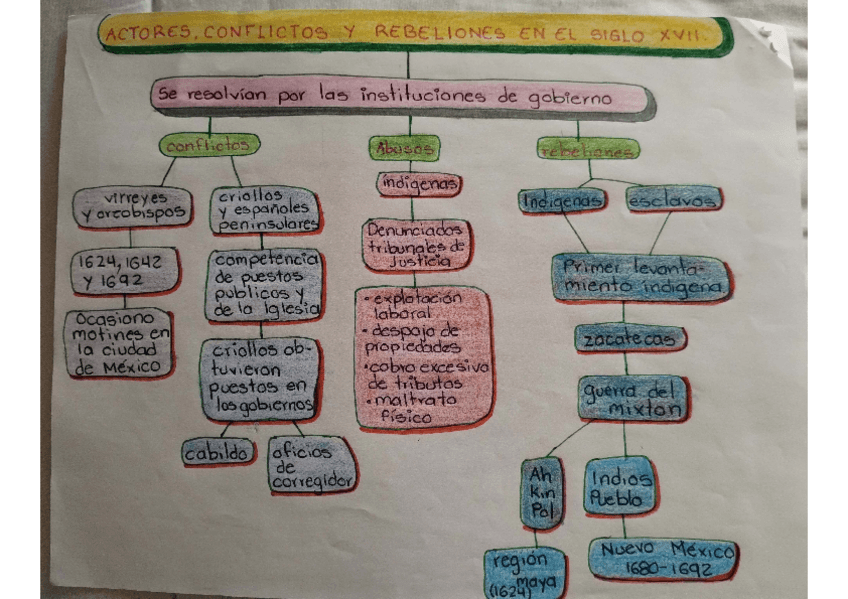 ACTORES, CONFLICTOS Y REBELIONES EN EL SIGLO XVII.
Se resolvían por las instituciones de gobierno
conflictos
virreyes
y arcobispos
1624, 1642
y 1692
Ocasiono
motines en
la ciudad
de México
criollos
y españoles
peninsulares
competencia
de puestos
publicos y
de la Iglesia
criollos ob-
tuvieron
puestos en
los gobiernos
cabildo
oficios
de
corregidor
Abusos
indigenas
Denunciados
tribunales de
Justicia
• explotación
laboral
• despojo de
propiedades
• cobro excesivo
de tributos
• maltrato
físico
rebeliones
Indigenas
esclavos
Primer levanta-
miento indigena
zacatecas
guerra del
mixton
Ah
Kin
Pol
región
maya
(1624)
Indios
Pueblo
Nuevo México
1680-1692